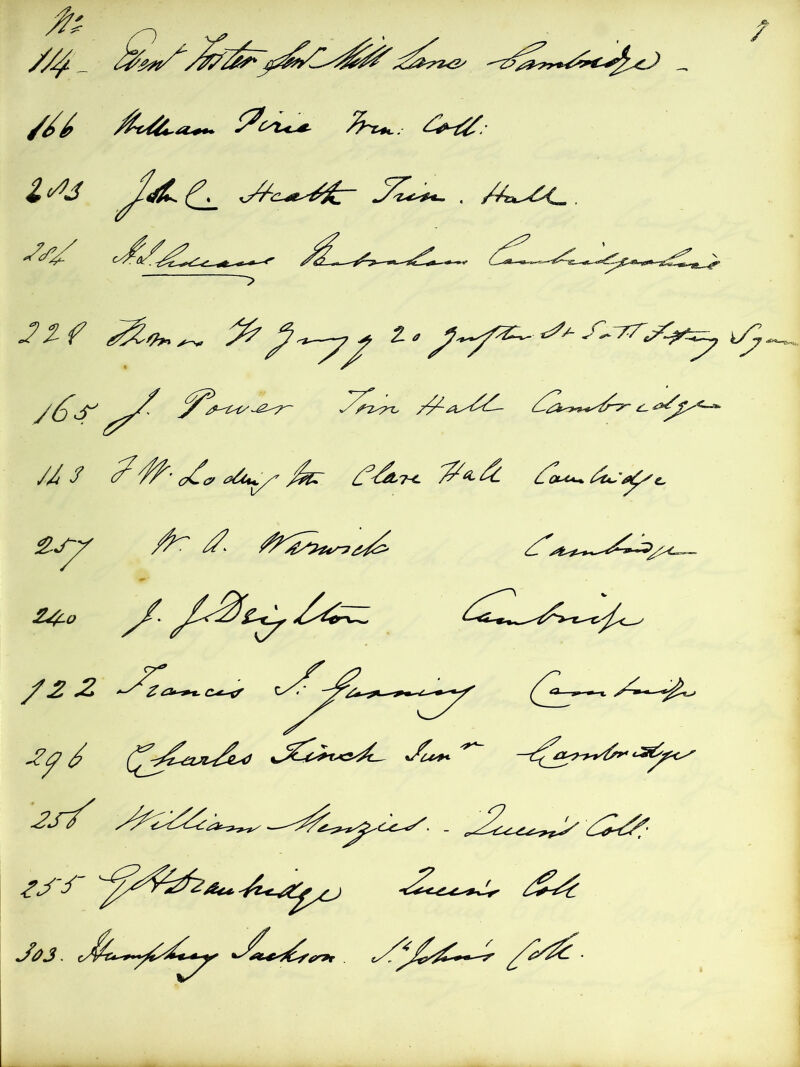 No. 7
114 - Ebenr Foster Senr Mill Lane Cambridge -
166 William Pirie Trin: Coll:
283 John C. Heath Trin. Hall.
284 H. J. Adeane Babraham Cambridgeshire
228 Thomas H 20 St Square
165 J. Power Trin Hall Cambridge
143 F W. Lodington Clare Hall Cambridge
257 W. A. Warwick Cambridge
240 J. J. Deighton Cambridge
122 Francis J: Gunning Cambridge
296 Charles Finch Junr Cambridge
256 William Menzies. - Queen's Coll:
255 G H Drawbridge Queen's Coll
303. Humphrey Jackson. St John's Coll.